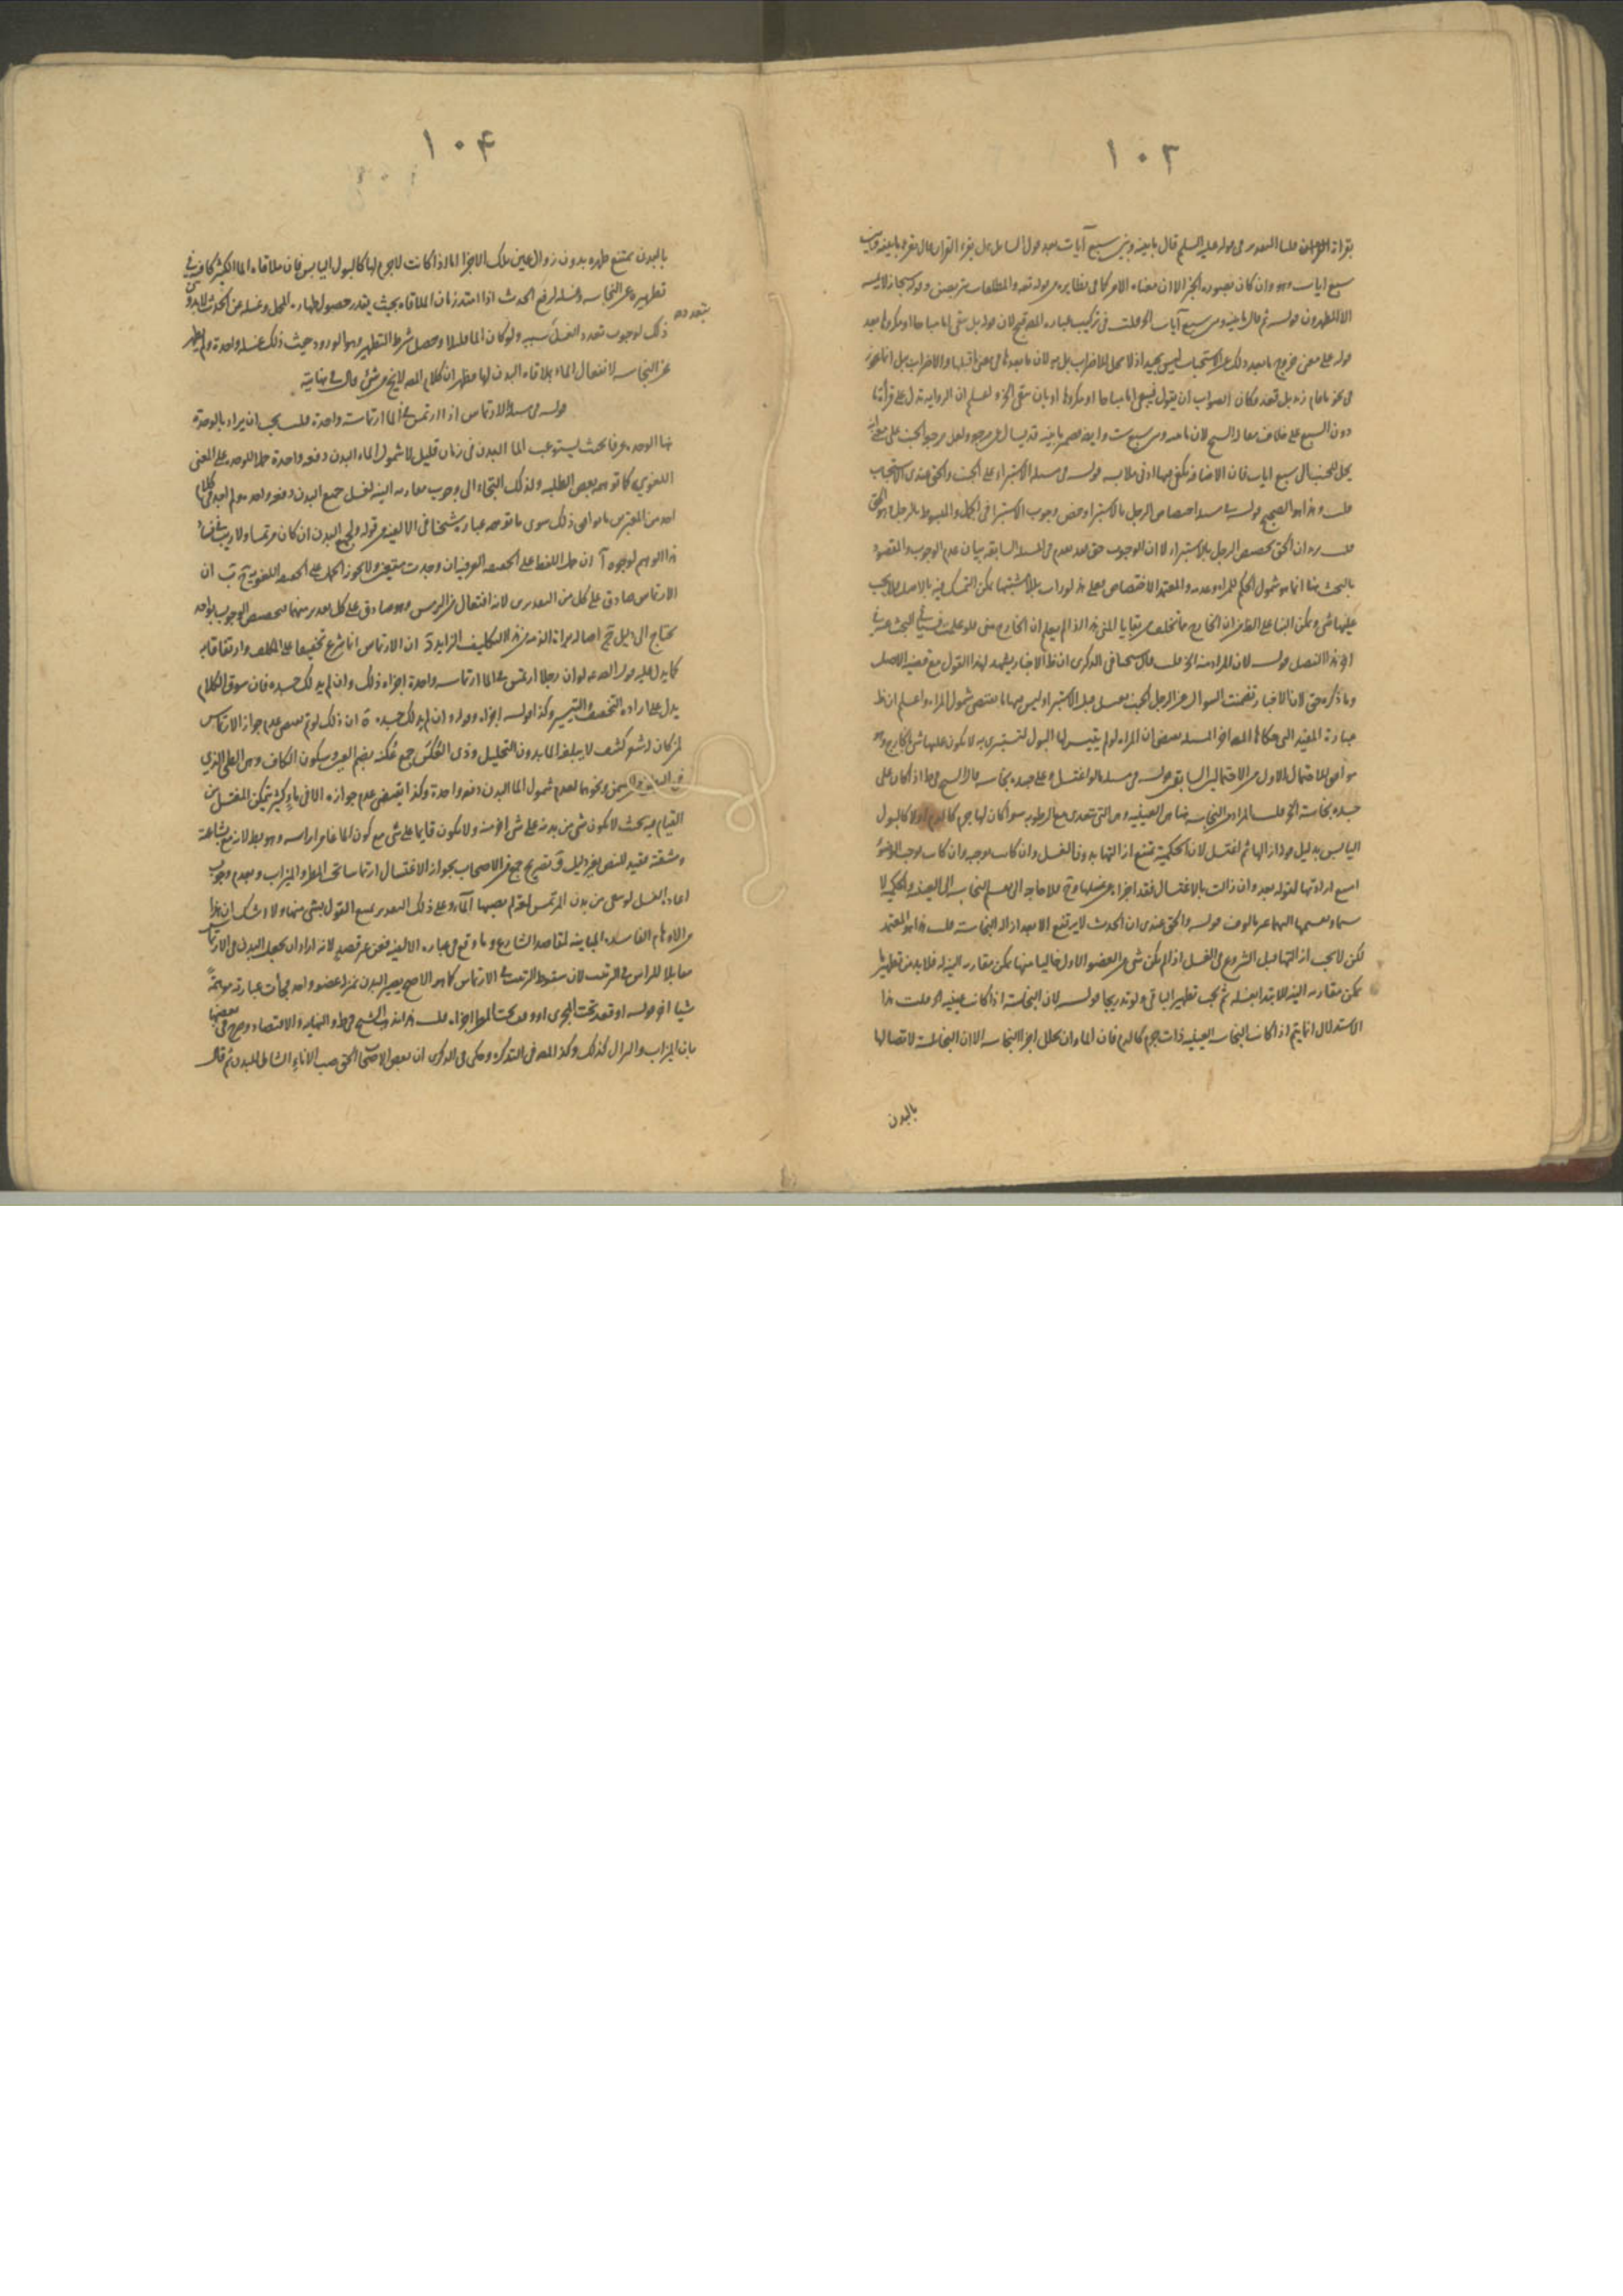 ١٠٣
بقراءة القران قلنا التقدير في قوله عليه السلم قال ما بينه وبين سبع آيات بعد قول السائل هل يقرء القران قال يقرء ما بينه وبين
سبع ايات وهو وان كان بصورة الخبر الا ان معناه الامر كما في نظايره من قوله تعه والمطلقات يتربصن وقوله سبحانه لا يمسه
الا المطهرون قوله ثم قال ما بينه وبين سبع آيات الخ قلت في تركيب عباره المص قبح لان قوله بل تبقى اما مباحا او مكروها بعد
قوله على معنى خروج ما بعد ذلك عن الاستحباب ليس بجيد اذ لا محل للاضراب بل
في نحو ما قام زيد بل قعد وكان الصواب ان يقول فيبقى اما مباحا او مكروها او بان يبقى الخ واعلم ان الرواية تدل على قرأة ما
دون السبع على خلاف مفاد
يحل للجنب الى سبع ايات فان الاضافه يكفي فيها ادنى ملابسه قوله في مسئلة الاستبراء على الجنب والحق عندي الاستحباب
قلت وهذا هو الصحيح قوله في مسئلة اختصاص الرجل بالاستبراء وخص وجوب الاستبرا في الجمل والمبسوط بالرجل وهو الحق
قلت يريد ان الحق تخصيص الرجل بالاستبراء لا ان الوجوب حق لما تقدم في المسئلة السابقه بيان عدم الوجوب والمقصود
بالبحث هنا انما هو شمول الحكم للمراه وعدمه والمعتمد الاختصاص فعلى هذا لو رات بللا مشتبها يمكن التمسك فيه بالاصل فلا يجب
عليها شي ويمكن البناء على الظ من ان الخارج ما تخلف من بقايا المني هذا اذا لم يعلم ان الخارج مني فلو علمت
اخر هذا الفصل قوله لان المراد منه الخ قلت قال شيخنا في الذكرى ان ظ الاخبار يشهد لهذا القول مع قضية الاصل
وما ذكره حق لان الاخبار تضمنت السؤال عن الرجل الجنب يغتسل قبل الاستبراء وليس فيها ما يقتضي شمول المراه واعلم ان ظ
عبارة المفيد التي حكاها المص اخر المسئلة يقتضي ان المراه لو لم يتيسر لها البول لتستبرى به لا يكون عليها شي
موافق للاحتمال الاول من الاحتمالين السابقين قوله في مسئلة ما لو اغتسل وعلى جسده نجاسه قال الشيخ في ط اذا كان على
جسده نجاسة الخ قلت المراد من النجاسه هنا هي العينيه وهي التي تتعدى مع الرطوبه سواء كان لها جرم كالدم او لا كالبول
اليابس بدليل قوله ازالها ثم اغتسل لان الحكمية تمتنع ازالتها بدون الغسل وان كانت موجبه وان كانت موجب الوضوء
امتنع ارادتها لقوله بعد وان زالت بالاغتسال فقد اجزاه عن غسلها
قوله والحق عندي ان الحدث لا يرتفع الا بعد ازالة النجاسة قلت هذا هو المعتمد
لكن لا يجب ازالتها قبل الشروع في الغسل اذا لم يكن شي من العضو الاول خاليا منها يمكن مقارنه النيه له فلا بد من تطهير ما
يمكن مقارنه النيه لابتداء غسله ثم يجب تطهير الباقي ولو تدريجا قوله لان النجاسة اذا كانت عينيه الخ قلت هذا
الاستدلال انما يتم اذا كانت النجاسه العينيه ذات جرم كالدم فان الماء وان تخلل اجزاء النجاسه الا ان النجاسة لاتصالها
بالبدن
١٠۴
بالبدن يمتنع طهره بدون زوال عين تلك الاجزا اما اذا كانت لا جرم لها كالبول اليابس فان ملاقاه الماء الكثير كاف في
تطهيره عن النجاسه وغسله لرفع الحدث اذا امتد زمان الملاقاه بحيث يقدر حصول طهاره المحل وغسله من الحدث
بتعدده
ذلك لوجوب تعدد الغسل سببه ولو كان الماء قليلا وحصل شرط التطهير وهو الورود حيث ذلك غسله واحدة ولم يطهر
عن النجاسه لانفعال الماء بملاقاه البدن لها فظهر ان كلام المص لا يخ من شئ قال في نهايته
قوله في مسئلة الارتماس اذا ارتمس في الماء ارتماسة واحدة قلت يجب ان يراد بالوحدة
هنا الوحده عرفا بحيث يستوعب الماء البدن في زمان قليل لا شمول الماء البدن دفعه واحدة حملا للوحده على المعنى
اللغوي كما توهمه بعض الطلبه ولذلك التجاء الى وجوب مقارنه النيه لغسل جميع البدن دفعه واحده ولم اجد في كلام
احد من المعتبرين ما يوافق ذلك سوى ما توهمه عبارة شيخنا في الالفيه من قوله ولجميع البدن ان كان مرتمسا ولا ريب في فساد
هذا الوهم لوجوه آ ان حمل اللفظ على الحقيقه العرفية ان وجدت متعين ولا يجوز الحمل على الحقيقه اللغوية ح ب ان
الارتماس صادق على كل من التقديرين لانه افتعال من الرمس وهو صادق على كل تقدير منهما فتخصيص الوجوب بواحد
يحتاج الى دليل ج اصالة براءة الذمه من هذا التكليف الزايد د ان الارتماس انما شرع تخفيفا على المكلف وارتفاقا به
كما يدل عليه قول الصه عه لو ان رجلا ارتمس في الماء ارتماسه واحدة اجزاه ذلك وان لم يدلك جسده فان سوق الكلام
يدل على اراده التخفيف والتيسير وكذا قوله اجزاه وقوله وان لم يدلك جسده ه ان ذلك لو تم يقتضي عدم جواز الارتماس
لمن كان له شعر كثيف لا يبلغه الماء بدون التخليل وذي العُكَن جمع عُكنه بضم العين وسكون الكاف وهي الطي الذي
في البطن من السمن ونحوهما لعدم شمول الماء البدن دفعه واحدة وكذا يقتضي عدم جوازه الا في ماء كثير يتمكن المغتسل من
القيام فيه بحيث لا يكون شي من بدنه على شي اخر منه ولا يكون قايما على شي مع كون الماء غامرا راسه
ومشقة مقيد للنص بغير دليل و تصريح جمع من الاصحاب بجواز الاغتسال ارتماسا تحت المطر والميزاب وبعدم وجوب
اعادة الغسل لو بقي من بدن المرتمس لمعه لم يصبها الماء وعلى ذلك التقدير يمتنع القول بشي منهما ولا شك ان هذا
من الاوهام الفاسده المباينه لمقاصد الشارع وما وقع في عباره الالفيه فعن غير قصد لانه اراد ان يجعل البدن في الارتماس
مقابلا للراس في الترتيب لان سقوط الترتيب في الارتماس كما هو الاصح يصير البدن بمنزلة عضو واحد فجأت عبارته موهمةً
شيا اخر قوله او قعد تحت المجرى او وقف تحت المطر اجزاه قلت هذا مذهب الشيخ في ط والنهايه والاقتصاد وصرح في بعضها
بان الميزاب والبزال كذلك وكذا المص في التذكره وحكى في الذكرى ان بعض الاصحاب الحق صب الاناء الشامل للبدن ثم قال